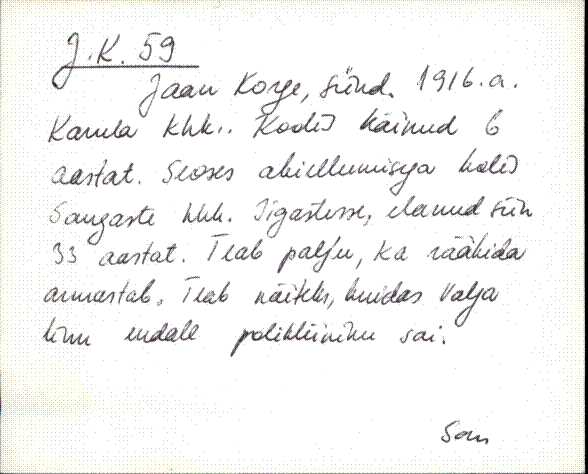 J.K. 59
Jaan Korge, sünd. 1916.a.
Karula khk.. Koolis käinud 6
aastat. Seoses abiellumisega tulid
Sangaste khk. Tigastesse, elanud siin
33 aastat. Teab palju, ka rääkida
armastab. Teab näiteks, kuidas Valga
linn endale polikliiniku sai.
San